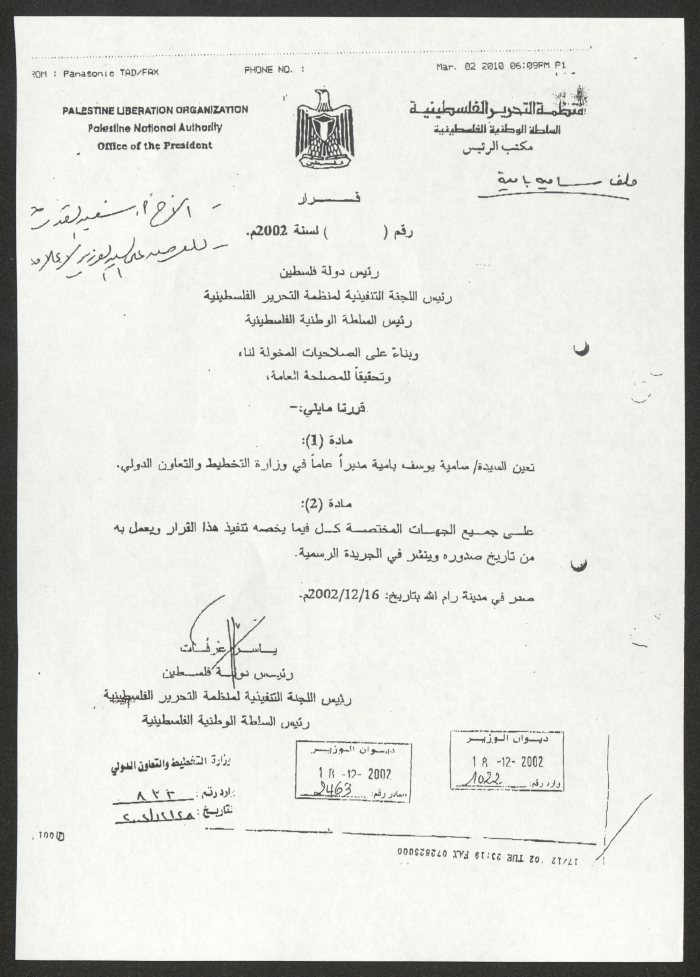 ROM : Panasonic TAD/FAX
PHONE NO. :
Mar. 02 2010 06:09PM P1
PALESTINE LIBERATION ORGANIZATION
Palestine National Authority
Office of the President
فلسطين
منظمة التحرير الفلسطينية
السلطة الوطنية الفلسطينية
مكتب الرئيس
ملف سامية بامية
قــرار
رقم ( ) لسنة 2002م.
رئيس دولة فلسطين
رئيس اللجنة التنفيذية لمنظمة التحرير الفلسطينية
رئيس السلطة الوطنية الفلسطينية
وبناءً على الصلاحيات المخولة لنا،
وتحقيقاً للمصلحة العامة،
قررنا مايلي:-
مادة (1):
تعين السيدة/ سامية يوسف بامية مديراً عاماً في وزارة التخطيط والتعاون الدولي.
مادة (2):
على جميع الجهات المختصة كل فيما يخصه تنفيذ هذا القرار ويعمل به
من تاريخ صدوره وينشر في الجريدة الرسمية.
صدر في مدينة رام الله بتاريخ: 2002/12/16م.
ياسر عرفات
رئيس دولة فلسطين
رئيس اللجنة التنفيذية لمنظمة التحرير الفلسطينية
رئيس السلطة الوطنية الفلسطينية
ديوان الوزير
18 -12- 2002
وارد رقم: 1022
ديوان الوزير
18 -12- 2002
صادر رقم: 2463
وزارة التخطيط والتعاون الدولي
وارد رقم: ٨٣٣
تاريخ:
17/12 '02 TUE 23:19 FAX 072825000
001